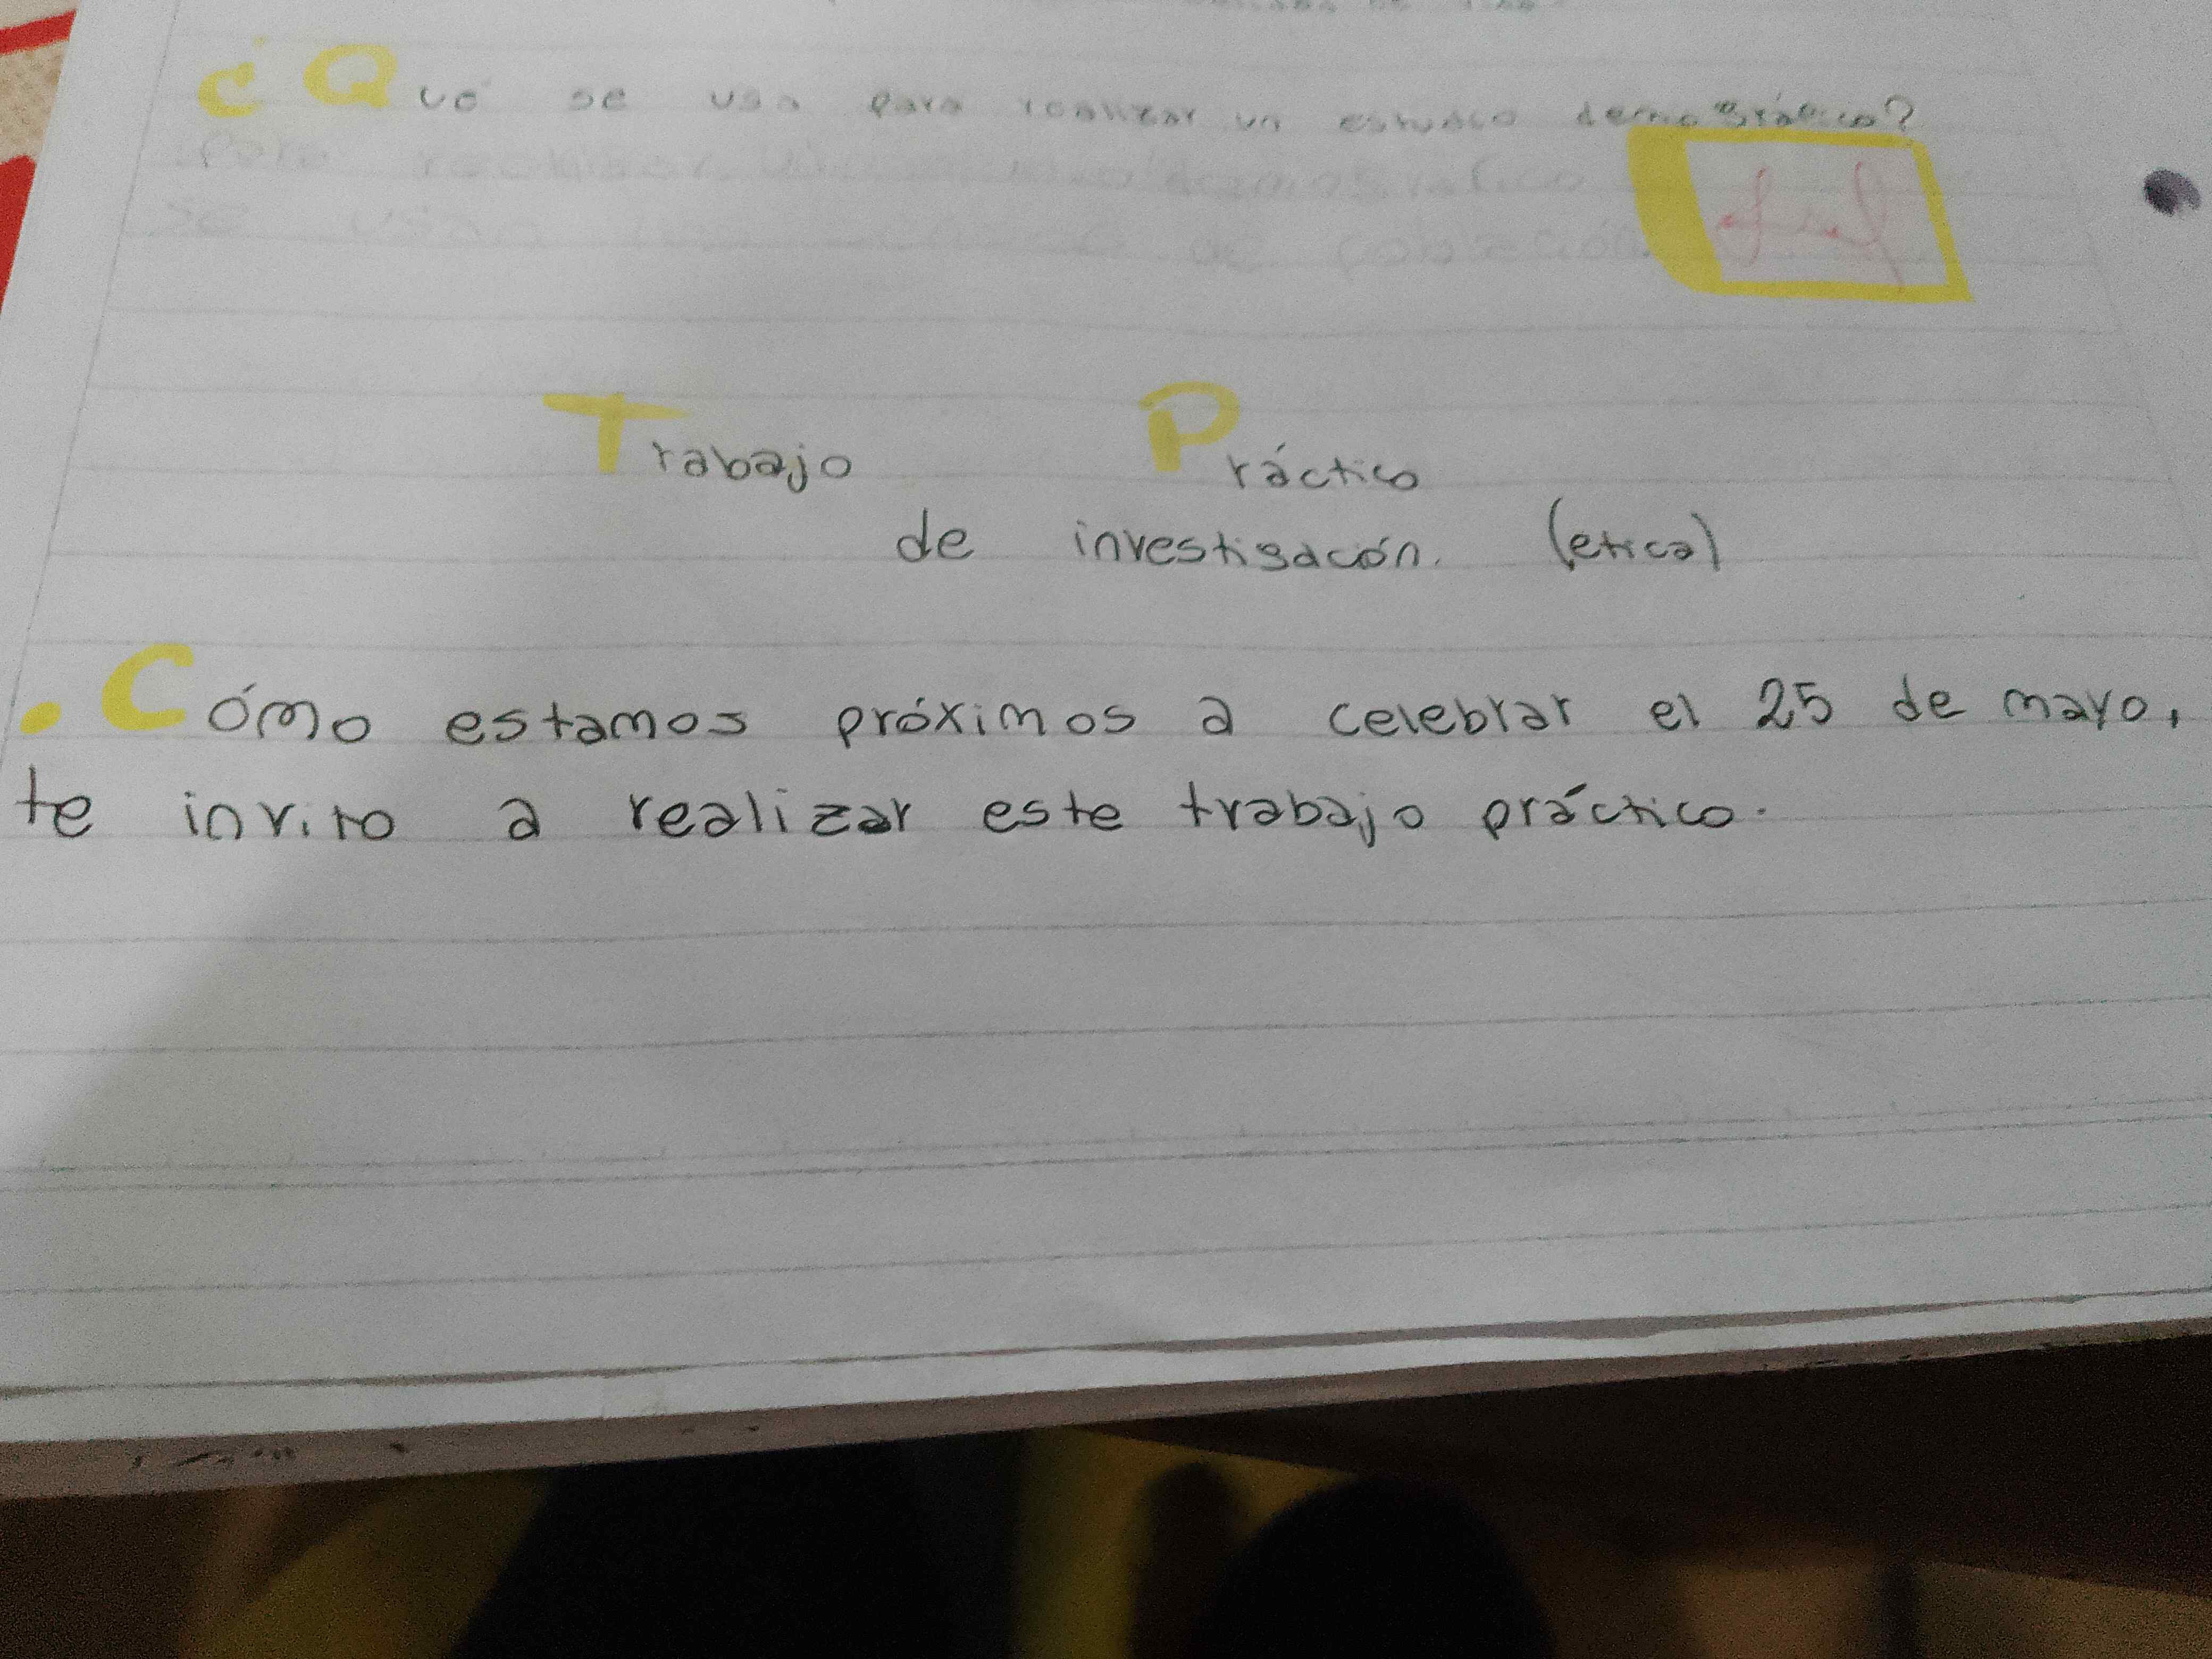 ¿Qué se usa para realizar un estudio demográfico?
Para realizar un demográfico
se usan de población.
Trabajo Práctico
de investigación. (etica)
. Cómo estamos próximos a celebrar el 25 de mayo,
te invito a realizar este trabajo práctico.